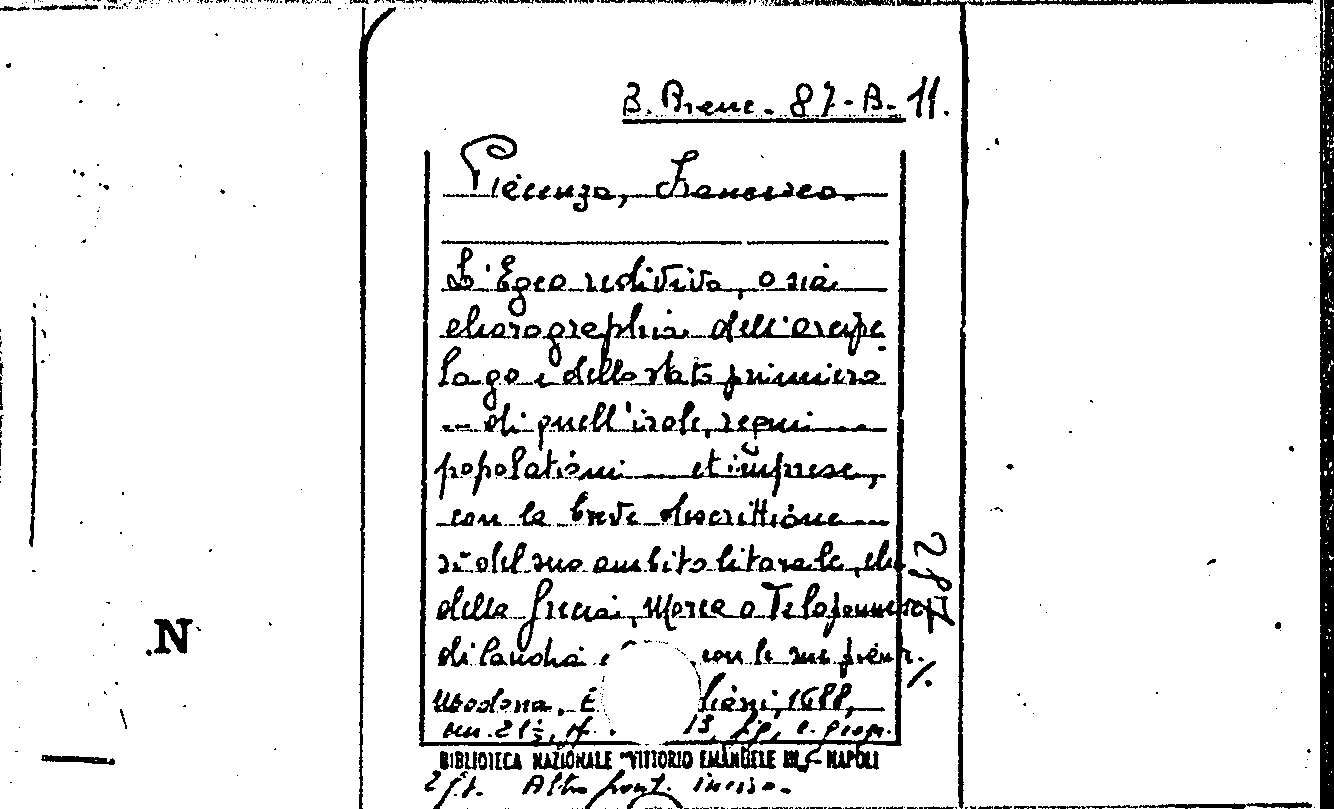 B. Branc. 87-B-11.
Piacenza, Francesco.
L'Egeo redivivo, o sia
chorographia dell'arcipe
lago e dello stato primiero
di quell'isole, regni
popolationi et imprese,
con la breve descrittione
sì del suo ambito litorale, che
della Grecia, Morea o Peloponneso
di Candia e con le sue
Modena, E 1688,
cm. 21½, 13, fig. e
BIBLIOTECA NAZIONALE "VITTORIO EMANUELE III" - NAPOLI
Altro front. inciso.
287
N